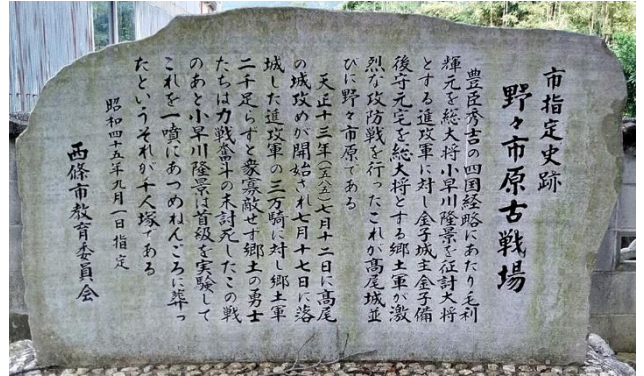 市指定史跡
野々市原古戦場
豊臣秀吉の四国経略にあたり毛利
輝元を総大将小早川隆景を征討大将
とする進攻軍に対し金子城主金子備
後守元宅を総大将とする郷土軍が激
烈な攻防戦を行ったこれが高尾城並
びに野々市原である
天正十三年(一五八五)七月十二日に髙尾
の城攻めが開始され七月十七日に落
城した進攻軍の三万騎に対し郷土軍
二千足らずと衆寡敵せず郷土の勇士
たちは力戦奮斗の末討死したこの戦
のあと小早川隆景は首級を実験して
これを一墳にあつめねんごろに葬っ
たというそれが千人塚である
昭和四十五年九月一日指定
西條市教育委員会